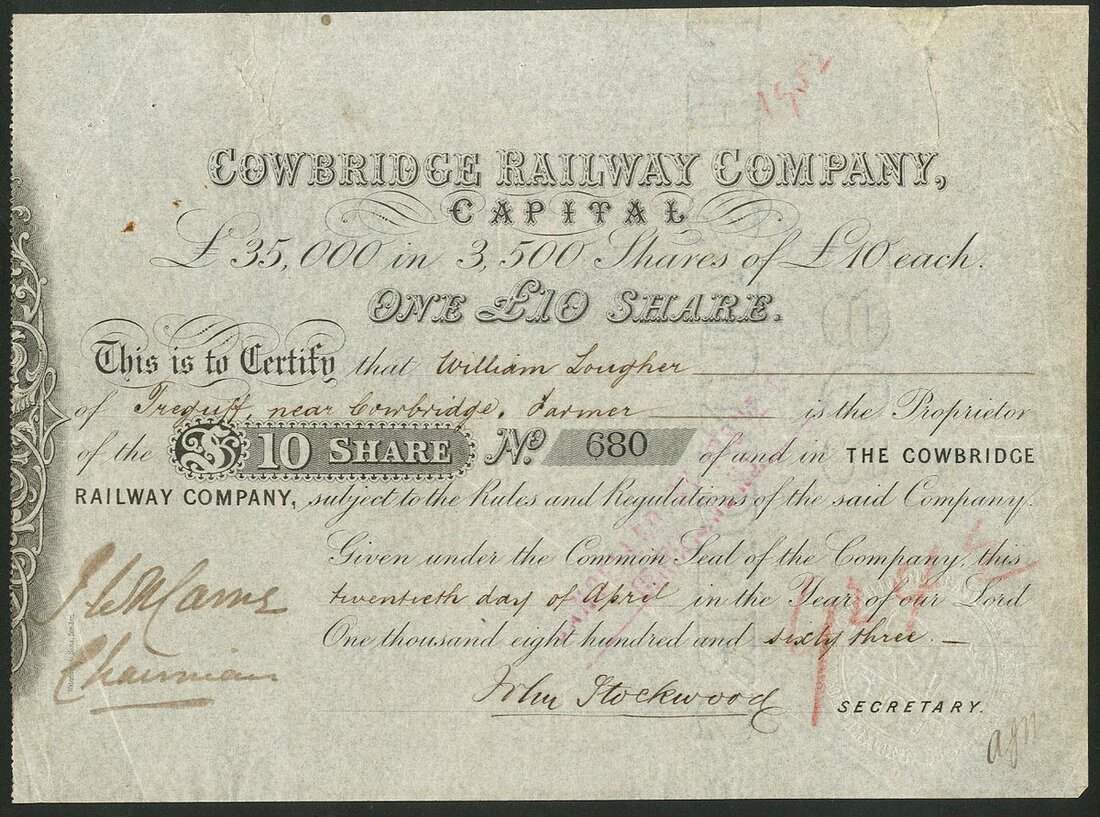 1952
COWBRIDGE RAILWAY COMPANY,
CAPITAL
£35,000 in 3,500 Shares of £10 each.
ONE £10 SHARE.
This is to Certify that William Lougher
of Treguff, near Cowbridge, Farmer is the Proprietor
of the £10 SHARE No. 680 of and in THE COWBRIDGE
RAILWAY COMPANY, subject to the Rules and Regulations of the said Company.
Given under the Common Seal of the Company, this
twentieth day of April in the Year of our Lord
One thousand eight hundred and sixty three. —
Chairman
John Stockwood SECRETARY.